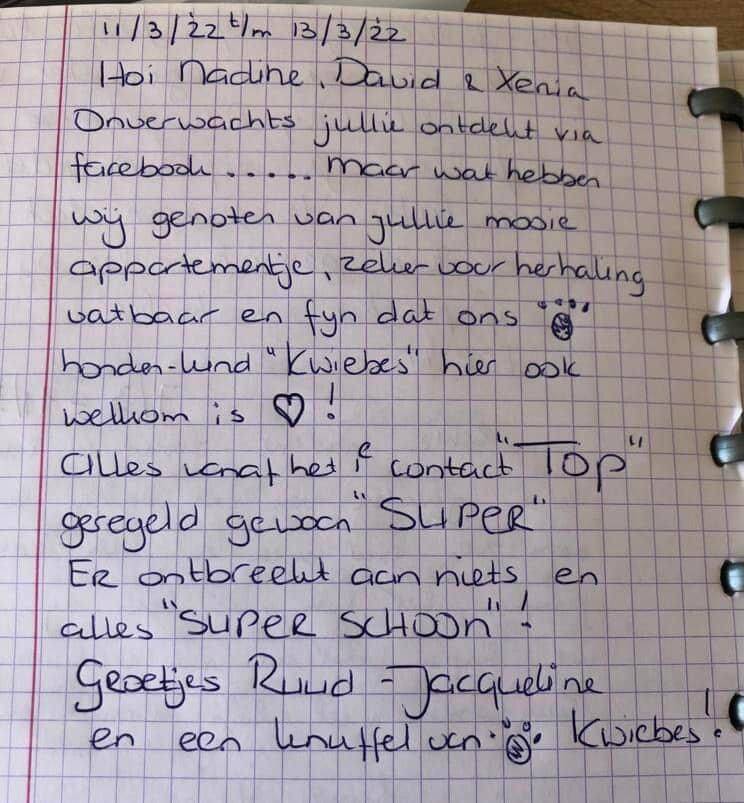 11/3/22 t/m 13/3/22
Hoi Nadine, David & Xenia
Onverwachts jullie ontdekt via
facebook ..... maar wat hebben
wij genoten van jullie mooie
appartementje, zeker voor herhaling
vatbaar en fyn dat ons
honden-kind "Kwiebes" hier ook
welkom is ♡ !
Alles vanaf het 1e contact "Top"
geregeld gewoon "SUPER"
Er ontbreekt aan niets en
alles "SUPER SCHOON" !
Groetjes Ruud - Jacqueline
en een knuffel van Kwiebes!